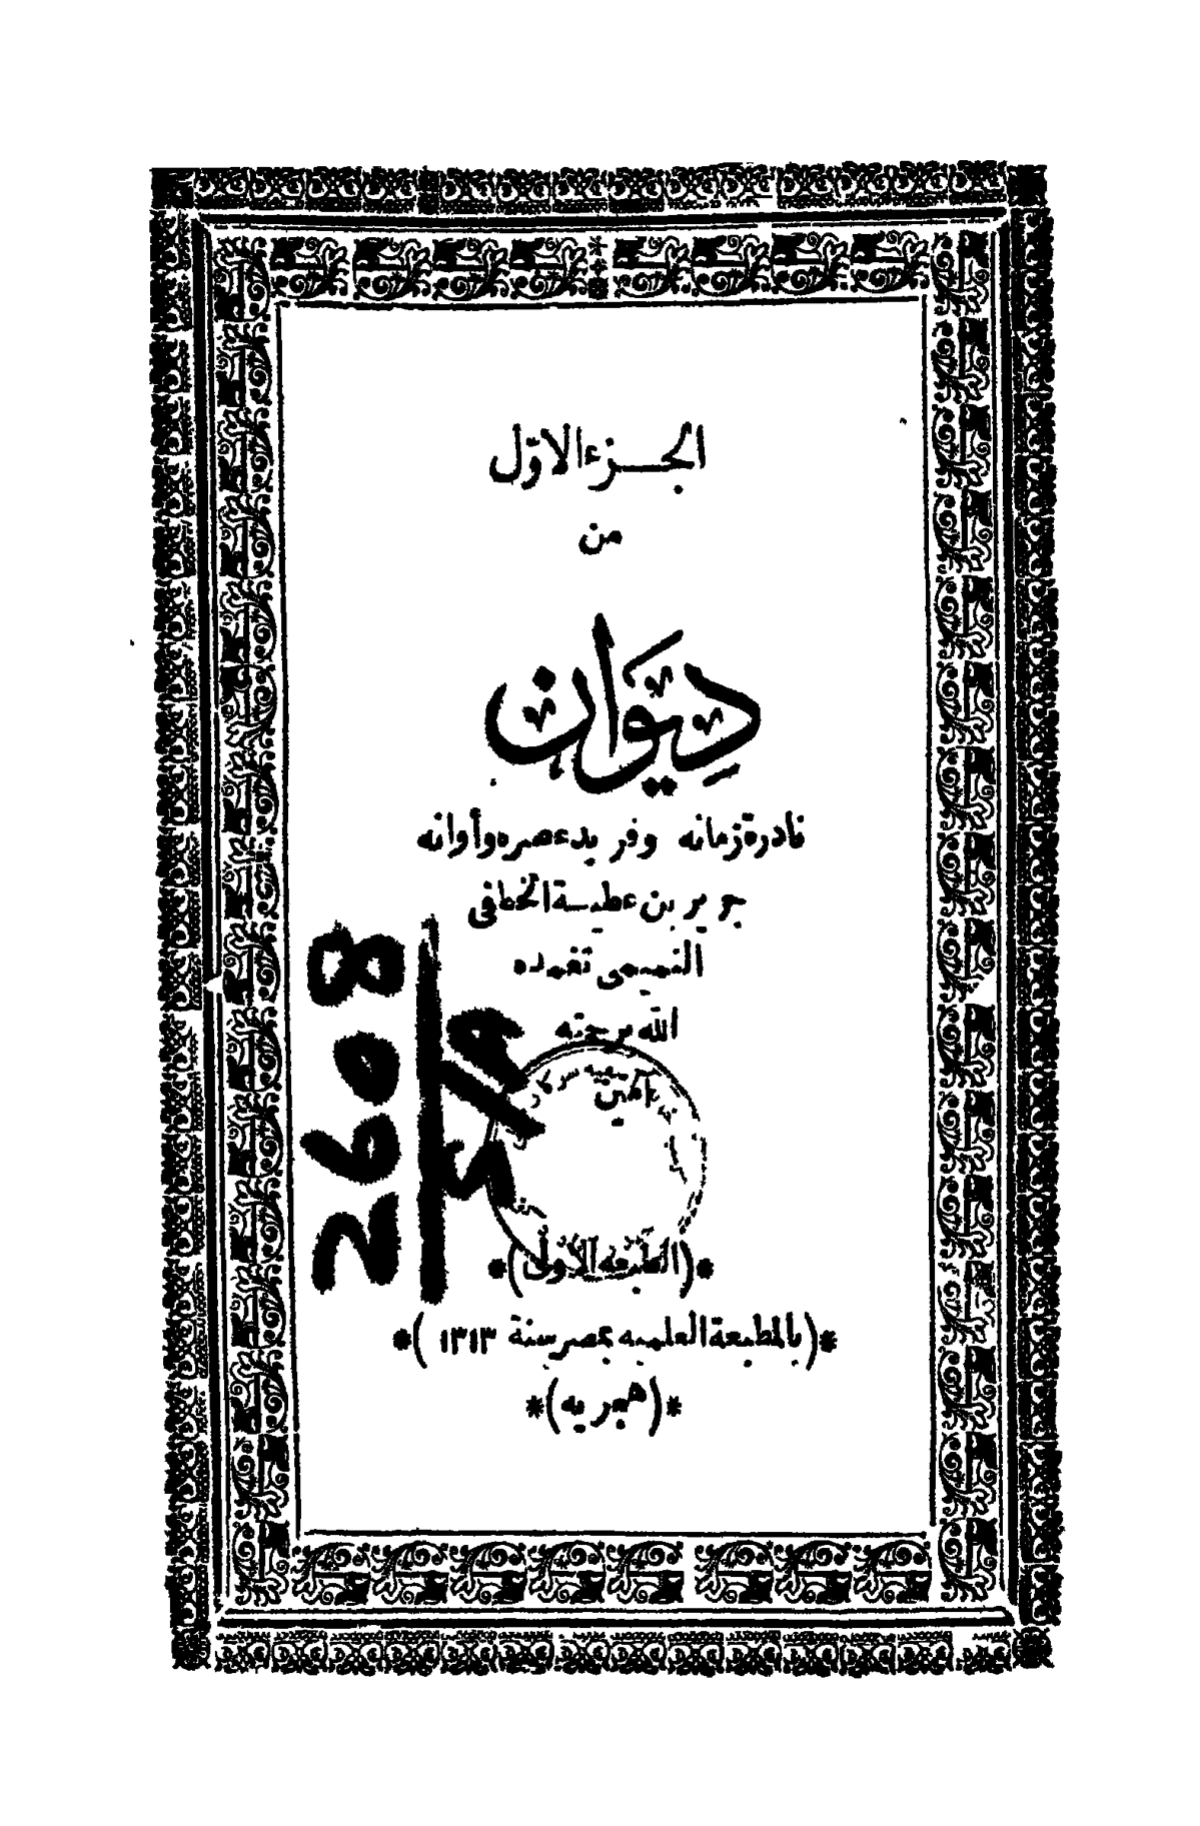 الجـزء الاوّل
من
دِيوَان
نادرة زمانه وفريد عصره وأوانه
جرير بن عطيـة الخطافى
التميمى تغمده
الله برحمته
آمين
*(الطبعه الاولى)*
*(بالمطبعة العلميه بمصر سنة ١٣١٣)*
*(هجريه)*
2608